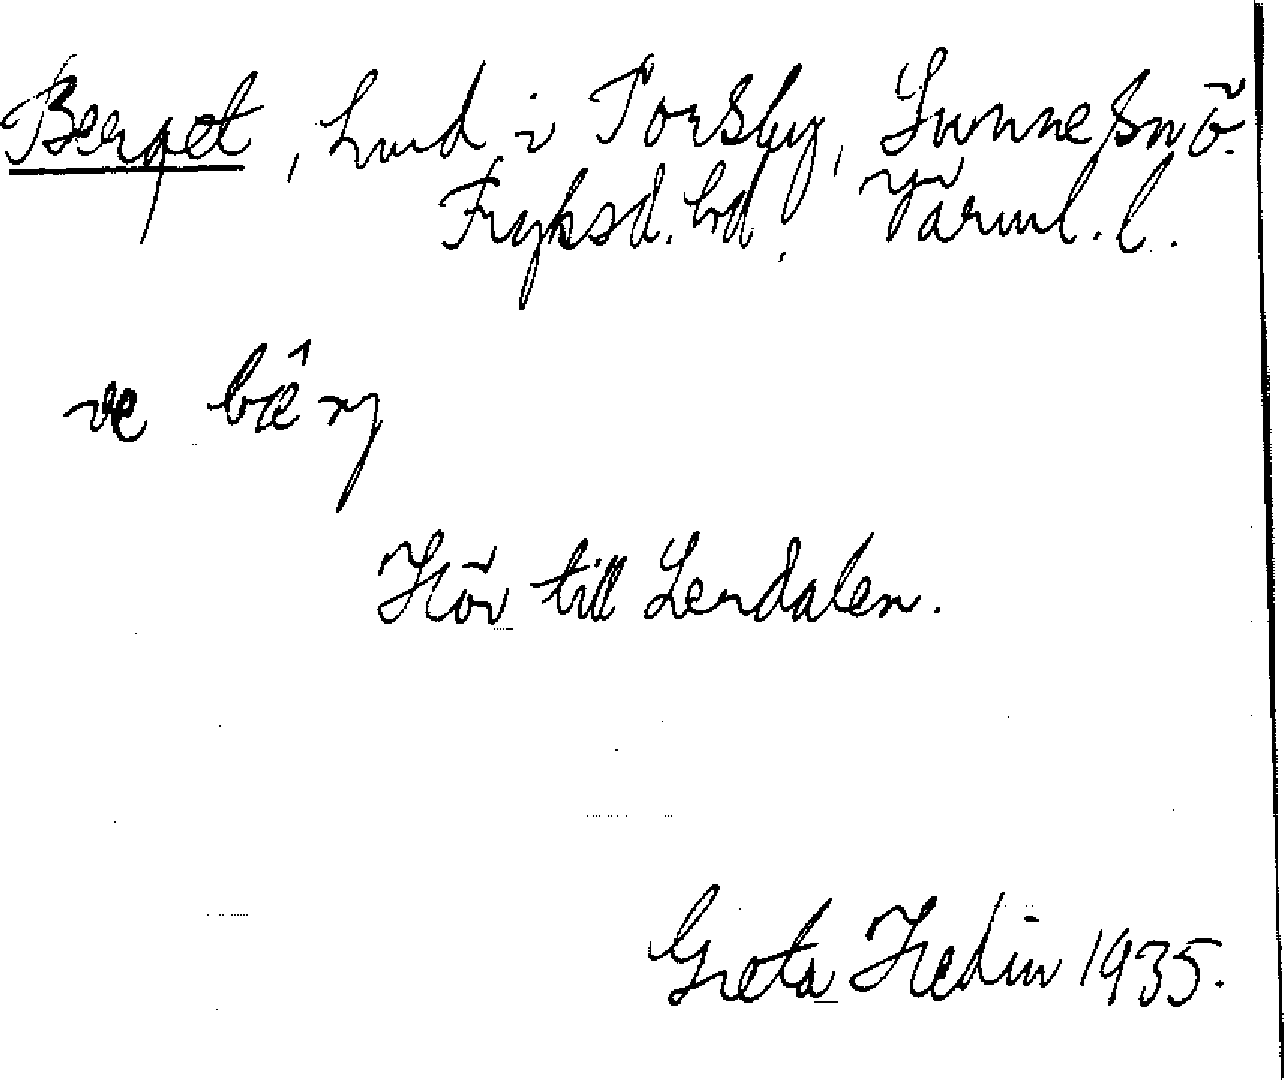 Berget, hmd i Torsby, Sunne sn ö.
Fryksd. hd. Värml. l.
ve bæ̂ry
Hör till Lerdalen.
Greta Hedin 1935.